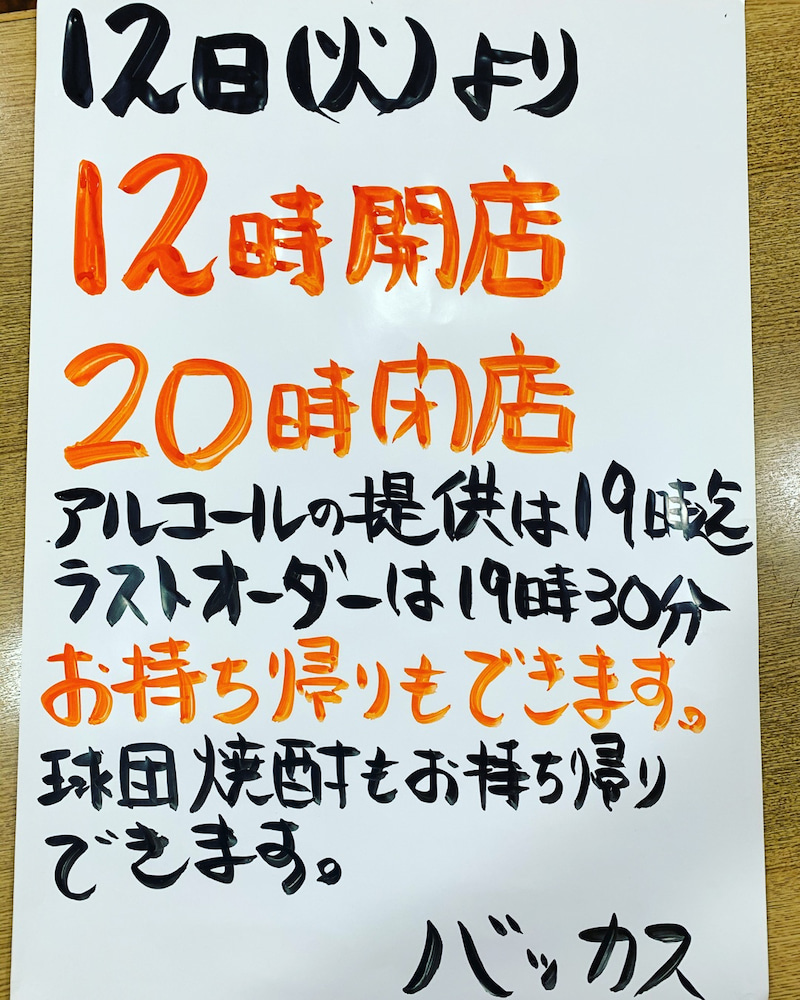 12日(火)より
12時開店
20時閉店
アルコールの提供は19時迄
ラストオーダーは19時30分
お持ち帰りもできます。
球団焼酎もお持ち帰り
できます。
バッカス